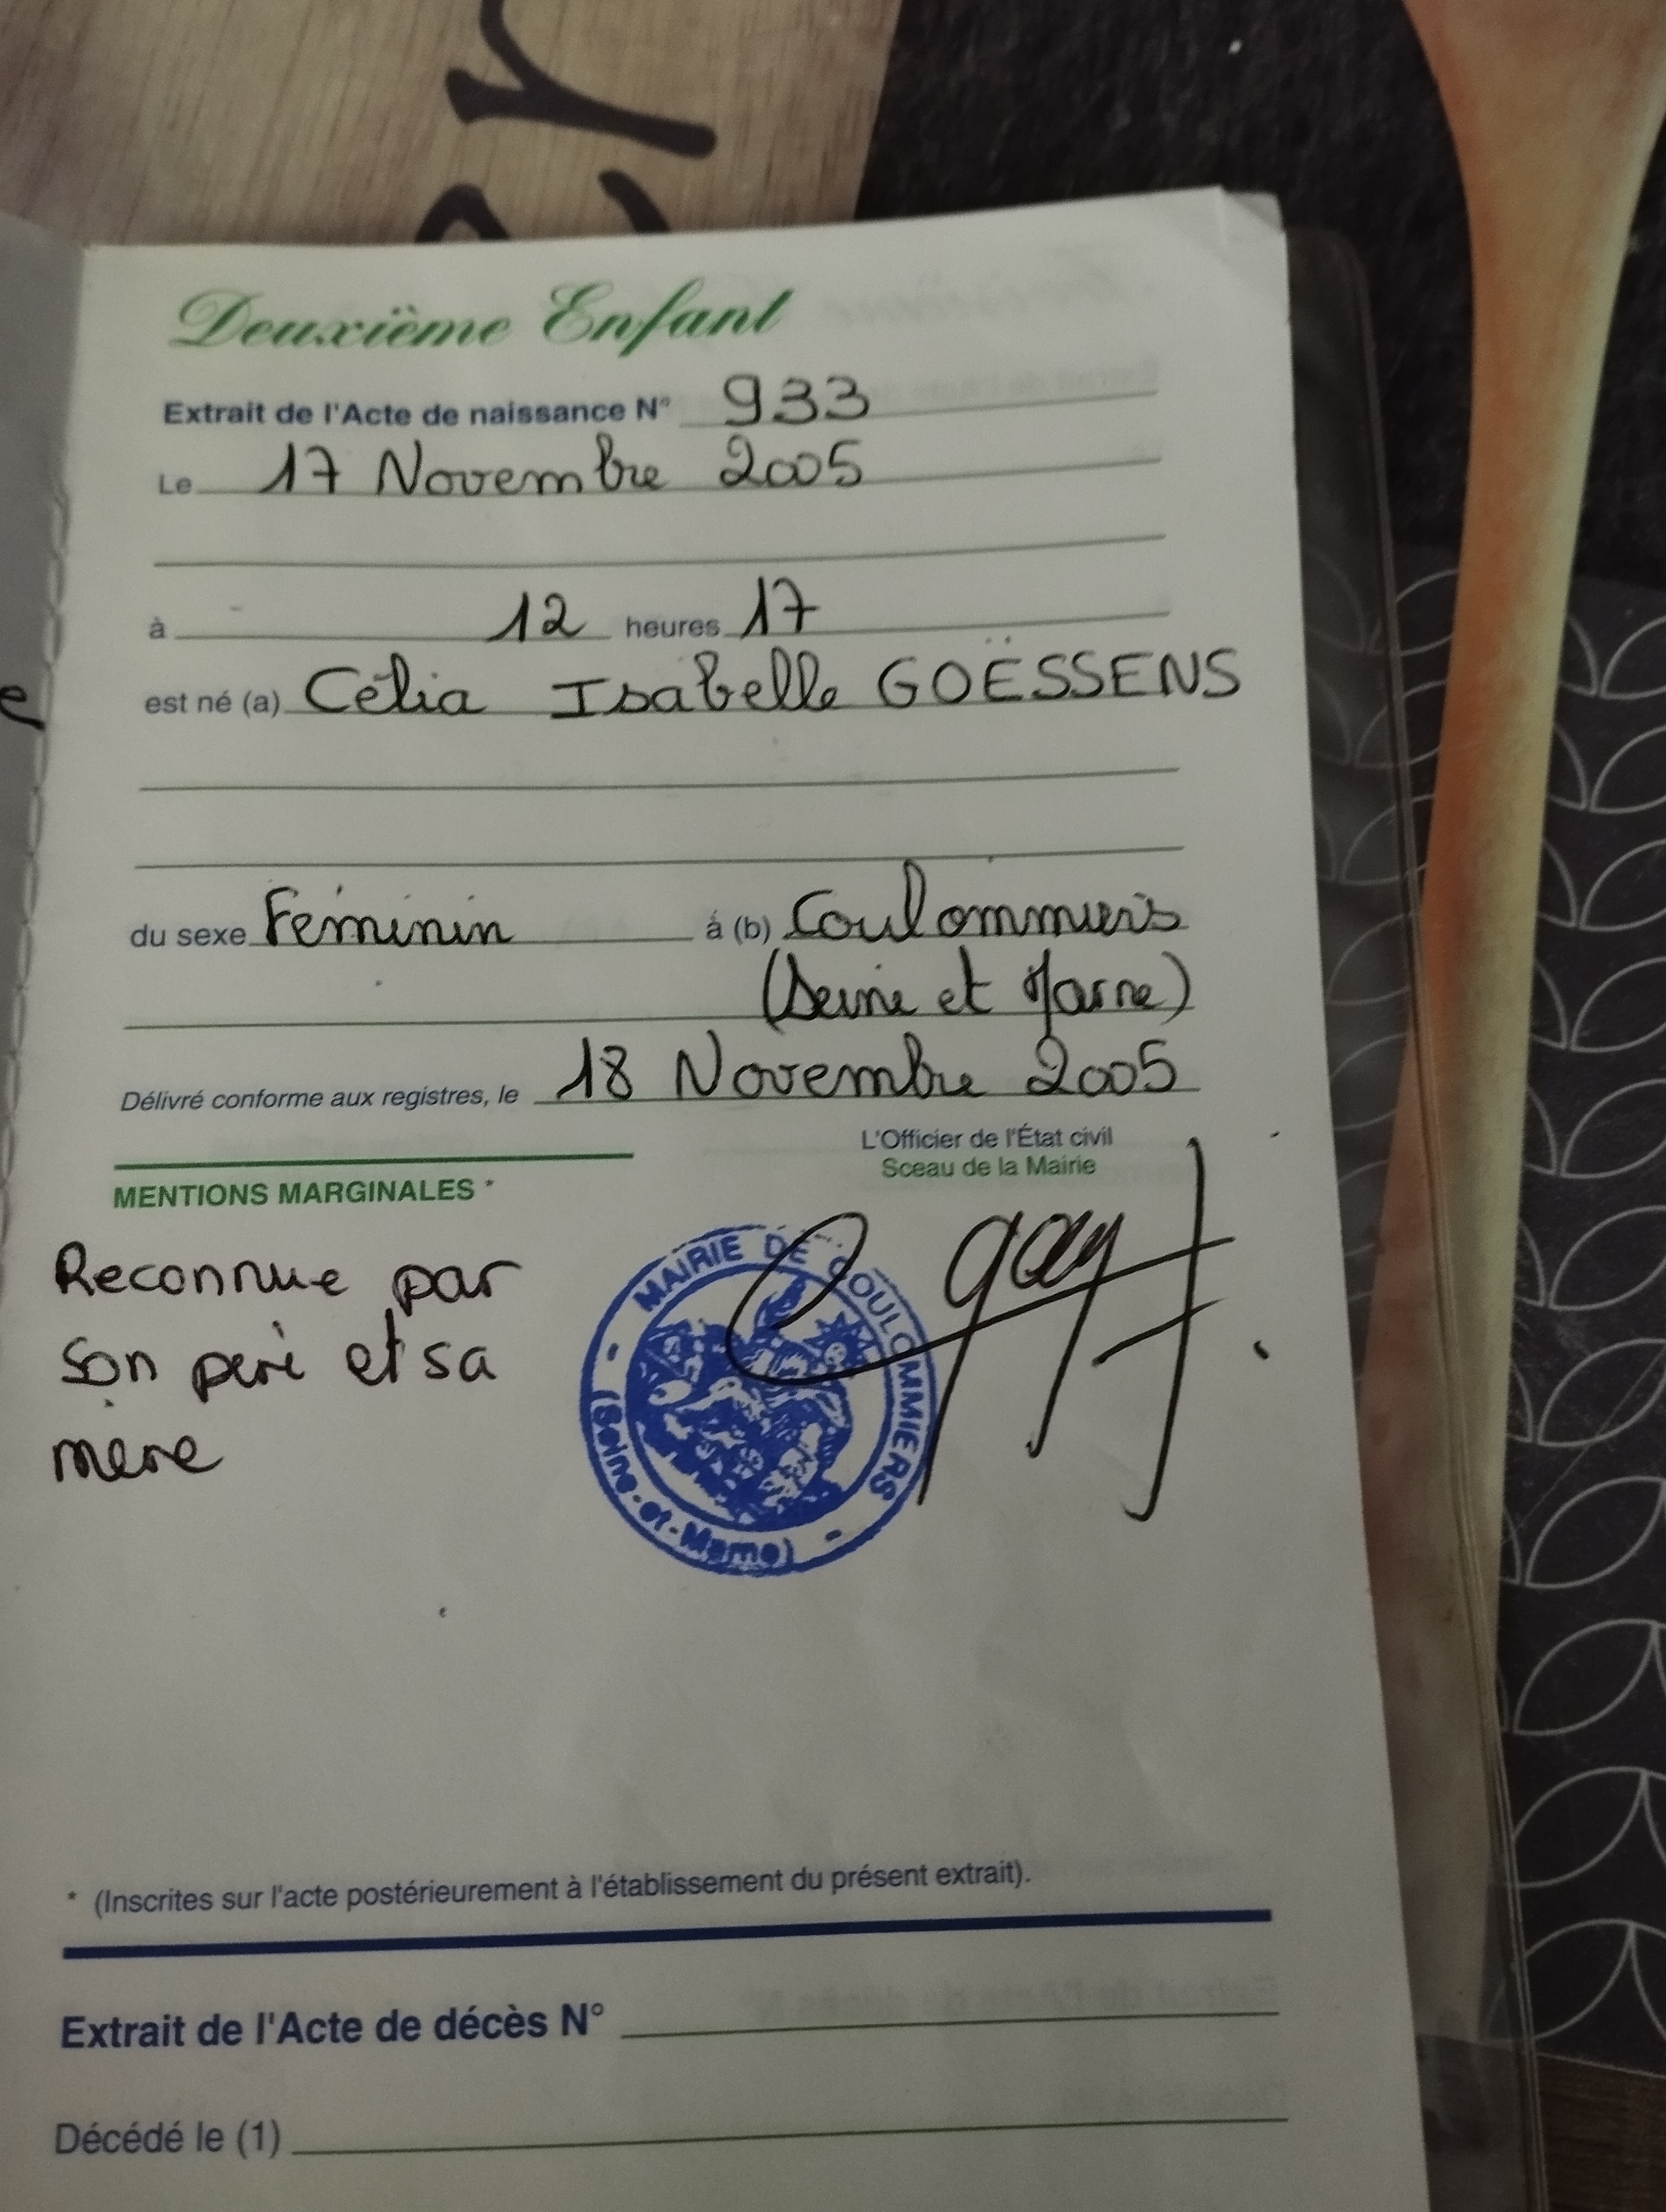 Deuxième Enfant
Extrait de l'Acte de naissance N° 933
Le 17 Novembre 2005
à 12 heures 17
est né (a) Célia Isabelle GOËSSENS
du sexe Féminin à (b) Coulommiers
(Seine et Marne)
Délivré conforme aux registres, le 18 Novembre 2005
L'Officier de l'État civil
Sceau de la Mairie
MENTIONS MARGINALES *
Reconnue par
son père et sa
mère
MAIRIE DE COULOMMIERS
(Seine-et-Marne)
* (Inscrites sur l'acte postérieurement à l'établissement du présent extrait).
Extrait de l'Acte de décès N°
Décédé le (1)